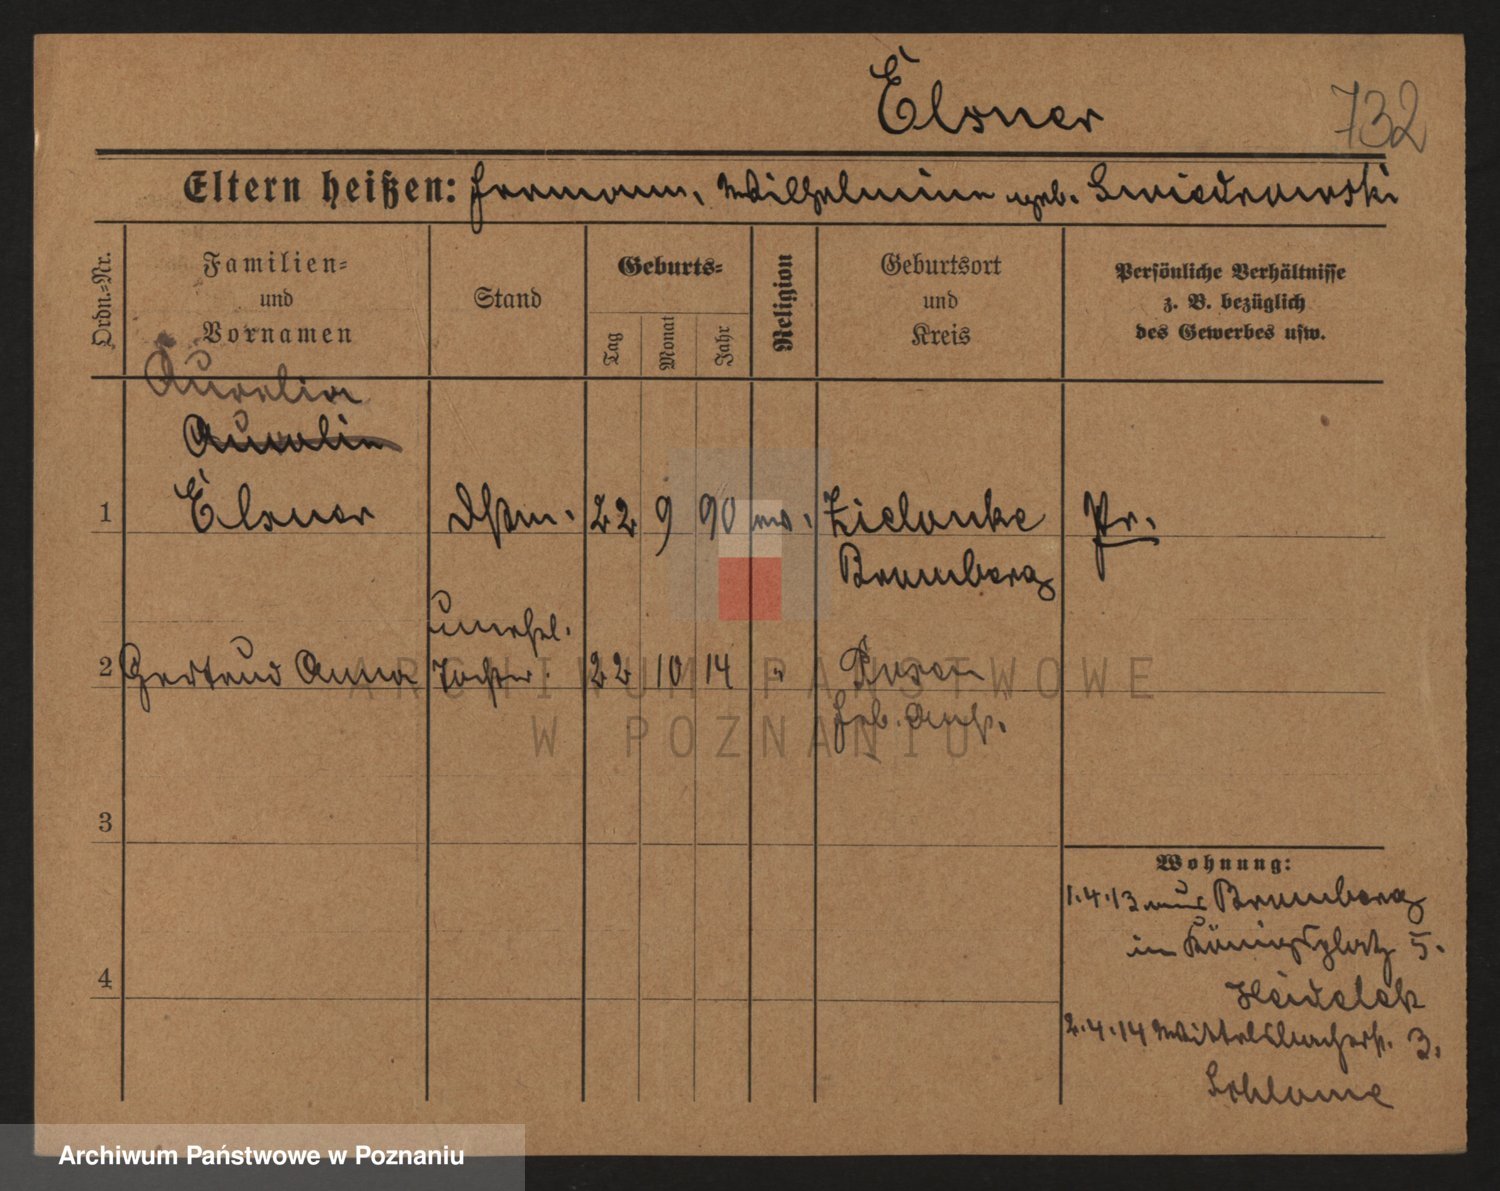 Elsner 732
Eltern heißen: Hermann, Wilhelmine geb. Swiedrowski
Ordn.-Nr.
Familien-
und
Vornamen
Stand
Geburts-
Tag
Monat
Jahr
Religion
Geburtsort
und
Kreis
Persönliche Verhältnisse
z. B. bezüglich
des Gewerbes usw.
Aurelie
Aurelie
1 Elsner Dstm. 22 9 90 ev. Zielonke Pr.
Bromberg
unehel.
2 Gertrud Anna Tochter 22 10 14 " Posen
Heb. Anst.
3
4
Wohnung:
1.4.13 aus Bromberg
in Königsplatz 5.
Heideleck
2.4.14 Wittelsbacherst. 3.
ARCHIWUM PAŃSTWOWE
W POZNANIU
Archiwum Państwowe w Poznaniu